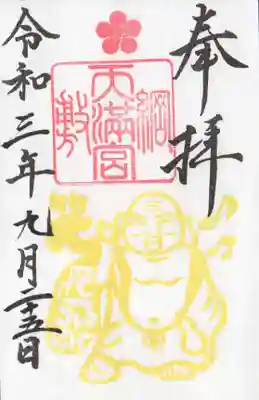 奉拝
綱敷天満宮
令和三年九月二十五日